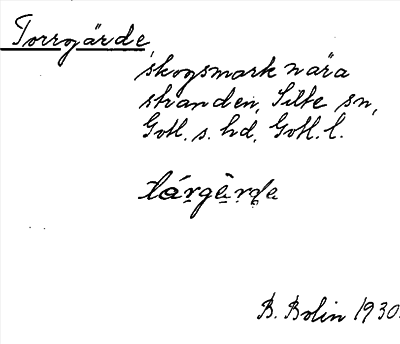 Torrgärde,
skogsmark nära
stranden, Silte sn,
Gotl. s. hd, Gotl. l.
tárgèrda
B. Bolin 1930.